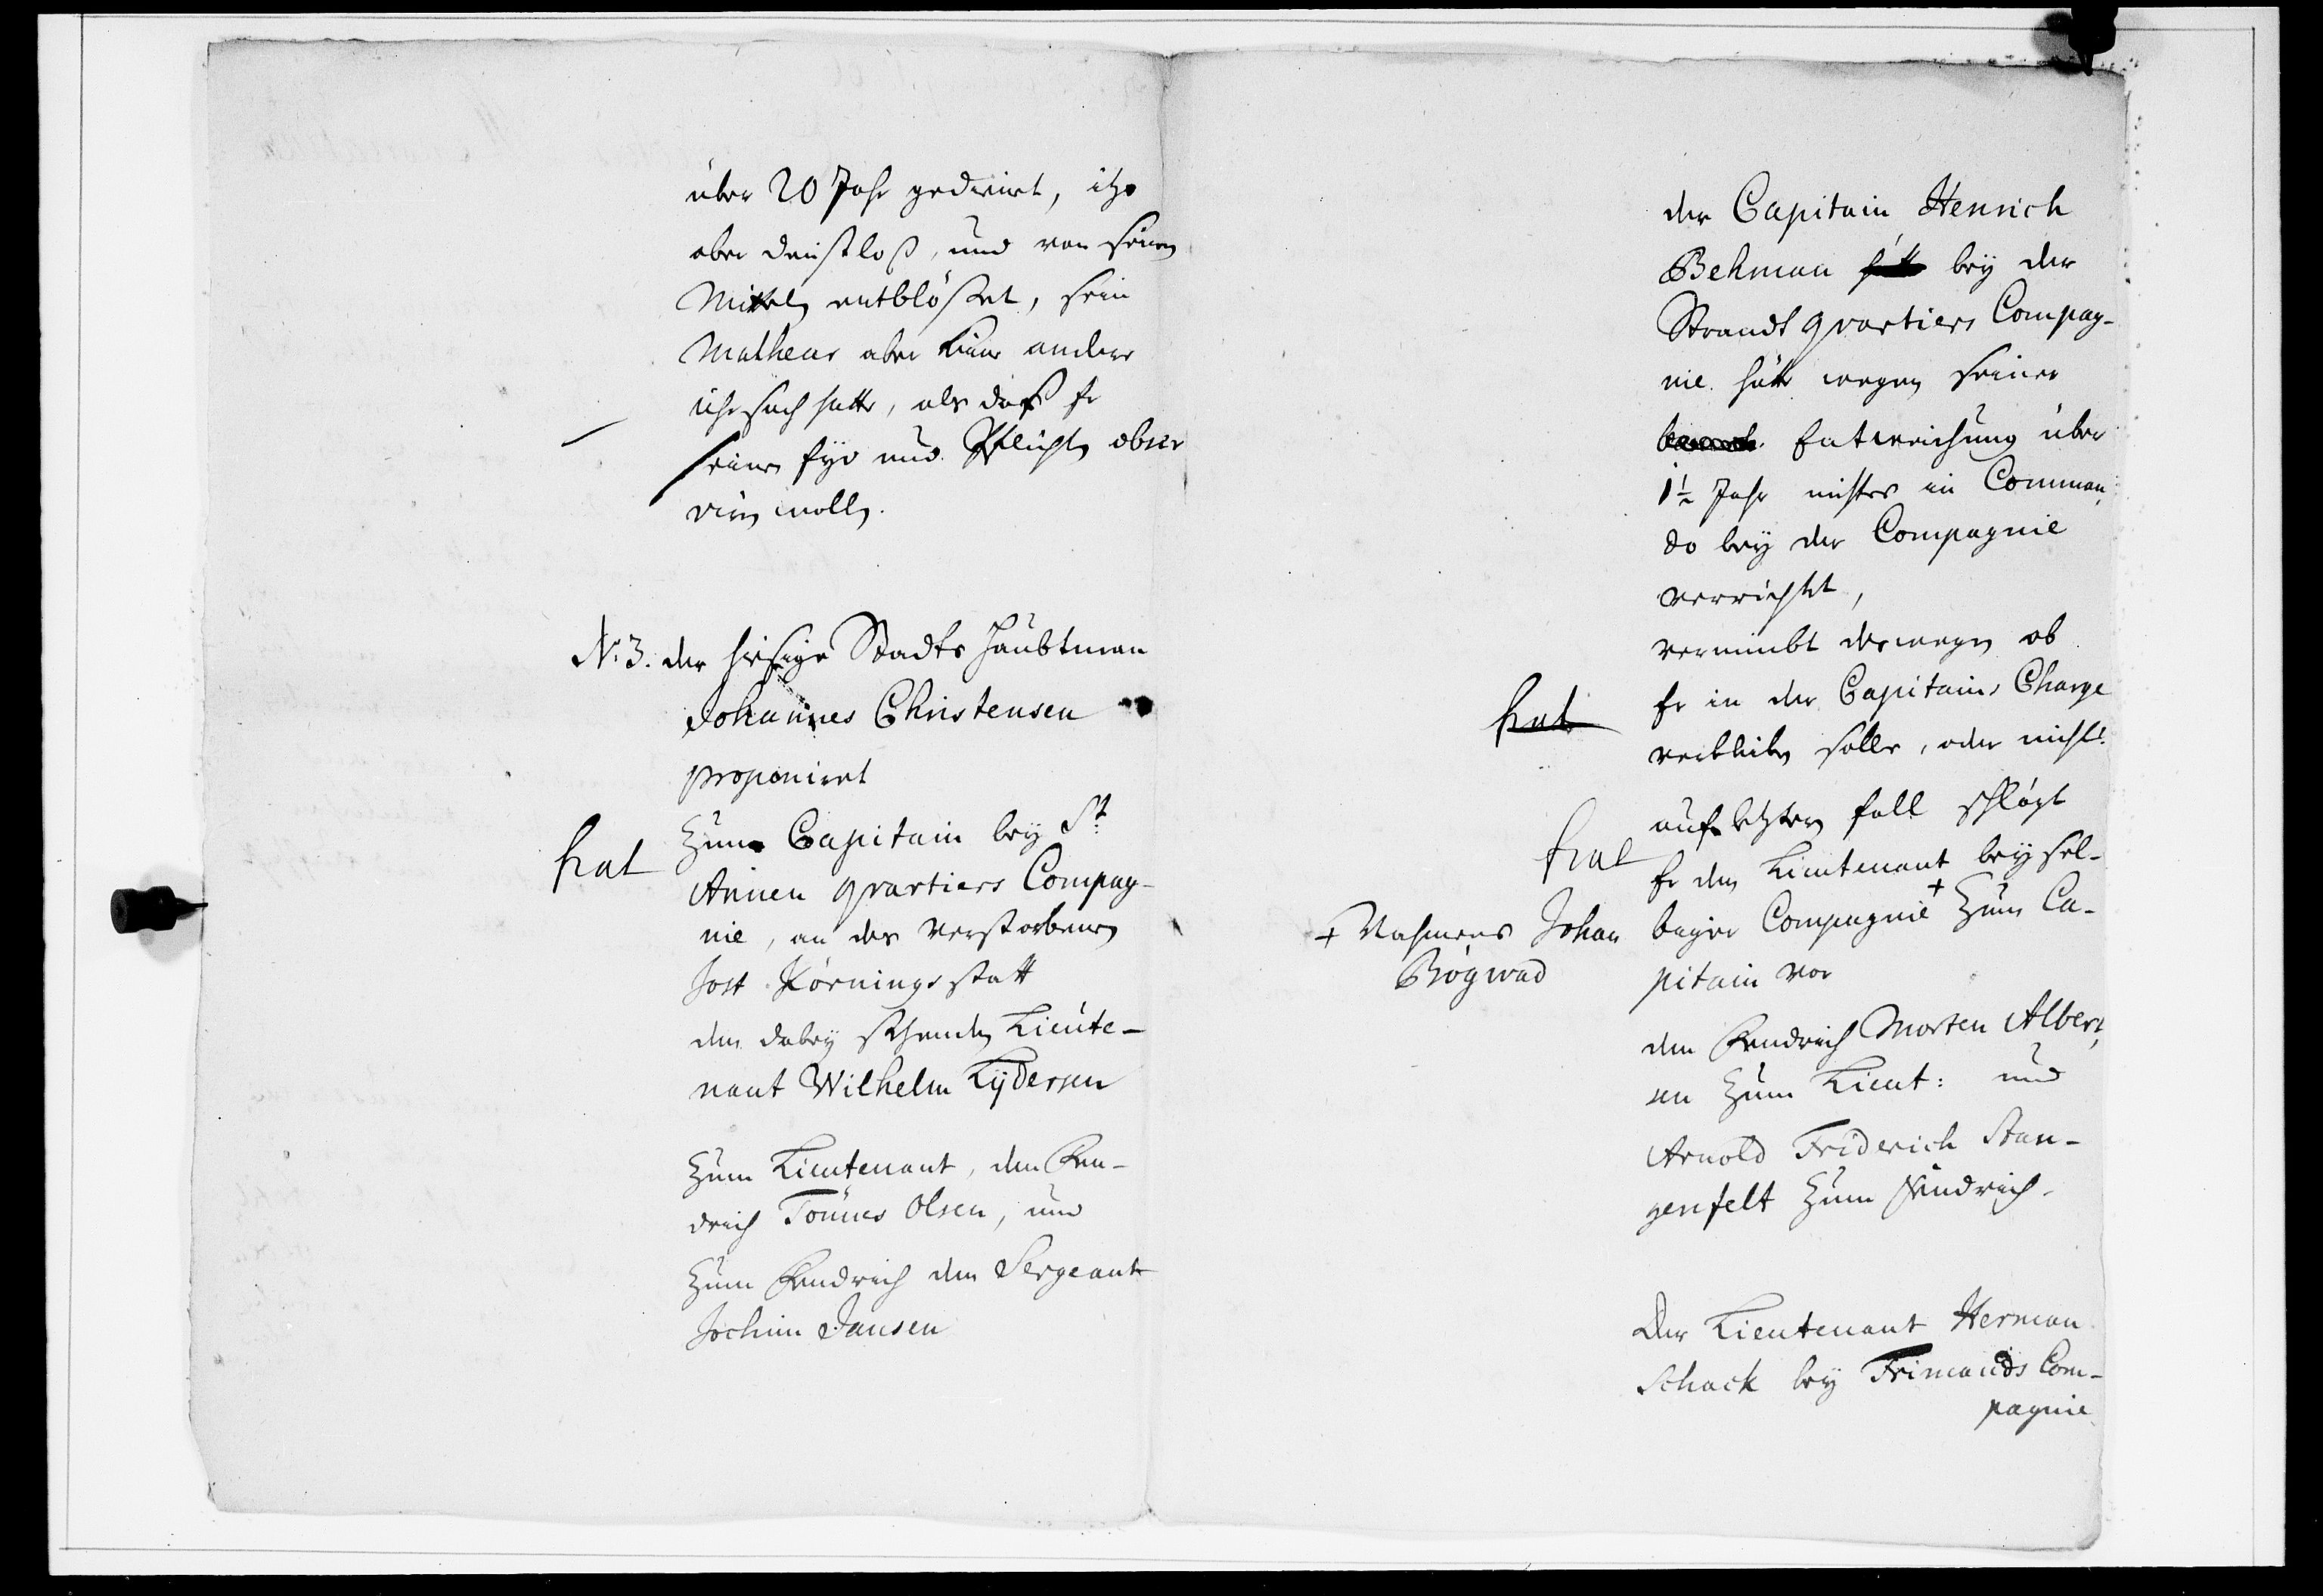 über 20 Jahr gedienet, itzo
aber dienstloß, und von seinen
Mitteln entblößet, sein
Malheur aber keine andere
Uhrsach hatte, als daß Er
seine Eyd und Pflicht obser
viren wollen.
N: 3. der hiesige Stadts Haubtman
Johannes Christensen
proponiret
fiat
Zum Capitain bey St:
Annen quartiers Compag-
nie, an des verstorbenen
Jost Körnings statt
den dabey stehenden Lieute-
nant Wilhelm Lydersen
Zum Lieutenant, den Fen-
drich Tönnes Olsen, und
Zum Fendrich den Sergeant
Jochim Jansen
der Capitain Henrich
Behman bey der
Strandt quartiers Compag-
nie hätte wegen seiner
Entweichung über
1½ Jahr nichtes im Comman
do bey der Compagnie
verrichtet,
vernimbt deswegen ob
fiat
Er in der Capitains Charge
verbleiben solle, oder nicht?
auf letzten fall schlägt
fiat
Er den Lieutenant bey sel-
biger Compagnie + Zum Ca-
+ Nahmens Johan
Bögwad
pitain vor
den Fendrich Morten Albert
sen Zum Lieut: und
Arnold Friderich Stan-
genfelt Zum Fendrich.
Der Lieutenant Herman
Schack bey Frimands Com-
pagnie